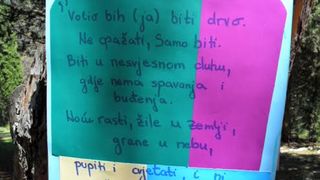 Volio bih (ja) biti drvo.
Ne opažati, samo biti.
Biti u nesvjesnom duhu,
gdje nema spavanja i
buđenja.
Noću rasti, žile u zemlji,
grane u nebu,
pupiti i cvjetati, i ni